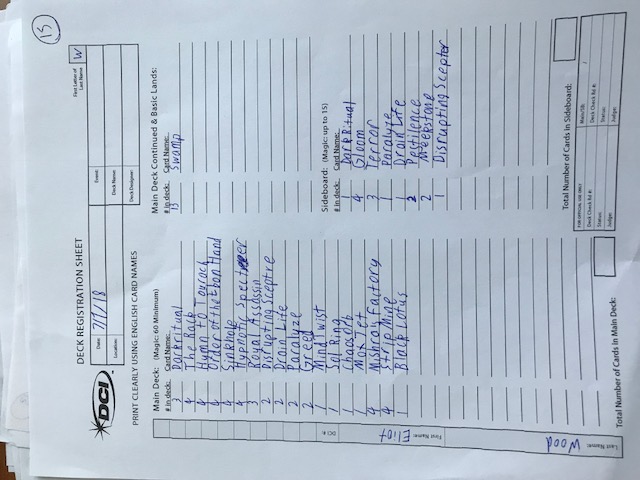 15
DECK REGISTRATION SHEET
First Letter of Last Name W
DCI
Date: 7/7/18
Event:
Location:
Deck Name:
Deck Designer:
PRINT CLEARLY USING ENGLISH CARD NAMES
Main Deck: (Magic: 60 Minimum)
# in deck: Card Name:
3 Darkritual
4 The Rack
4 Hymn to Tourach
4 Order of the Ebon Hand
4 Sinkhole
4 Hypnotic Specter
3 Royal Assassin
2 Disrupting Sceptre
2 Drain Life
2 Paralyze
2 Greed
1 Mind Twist
1 Sol Ring
1 Chaos orb
1 Mox Jet
4 Mishra's Factory
4 Strip Mine
1 Black Lotus
Total Number of Cards in Main Deck:
Main Deck Continued & Basic Lands:
# in deck: Card Name:
13 Swamp
Sideboard: (Magic: up to 15)
# in deck: Card Name:
1 Dark Ritual
4 Gloom
3 Terror
1 Paralyze
1 Drain Life
2 Pestilence
2 Meekstone
1 Disrupting Scepter
Total Number of Cards in Sideboard:
FOR OFFICIAL USE ONLY
Main/SB: /
Deck Check Rd #:
Deck Check Rd #:
Status:
Status:
Judge:
Judge:
DCI #:
First Name: Eliot
Last Name: Wood